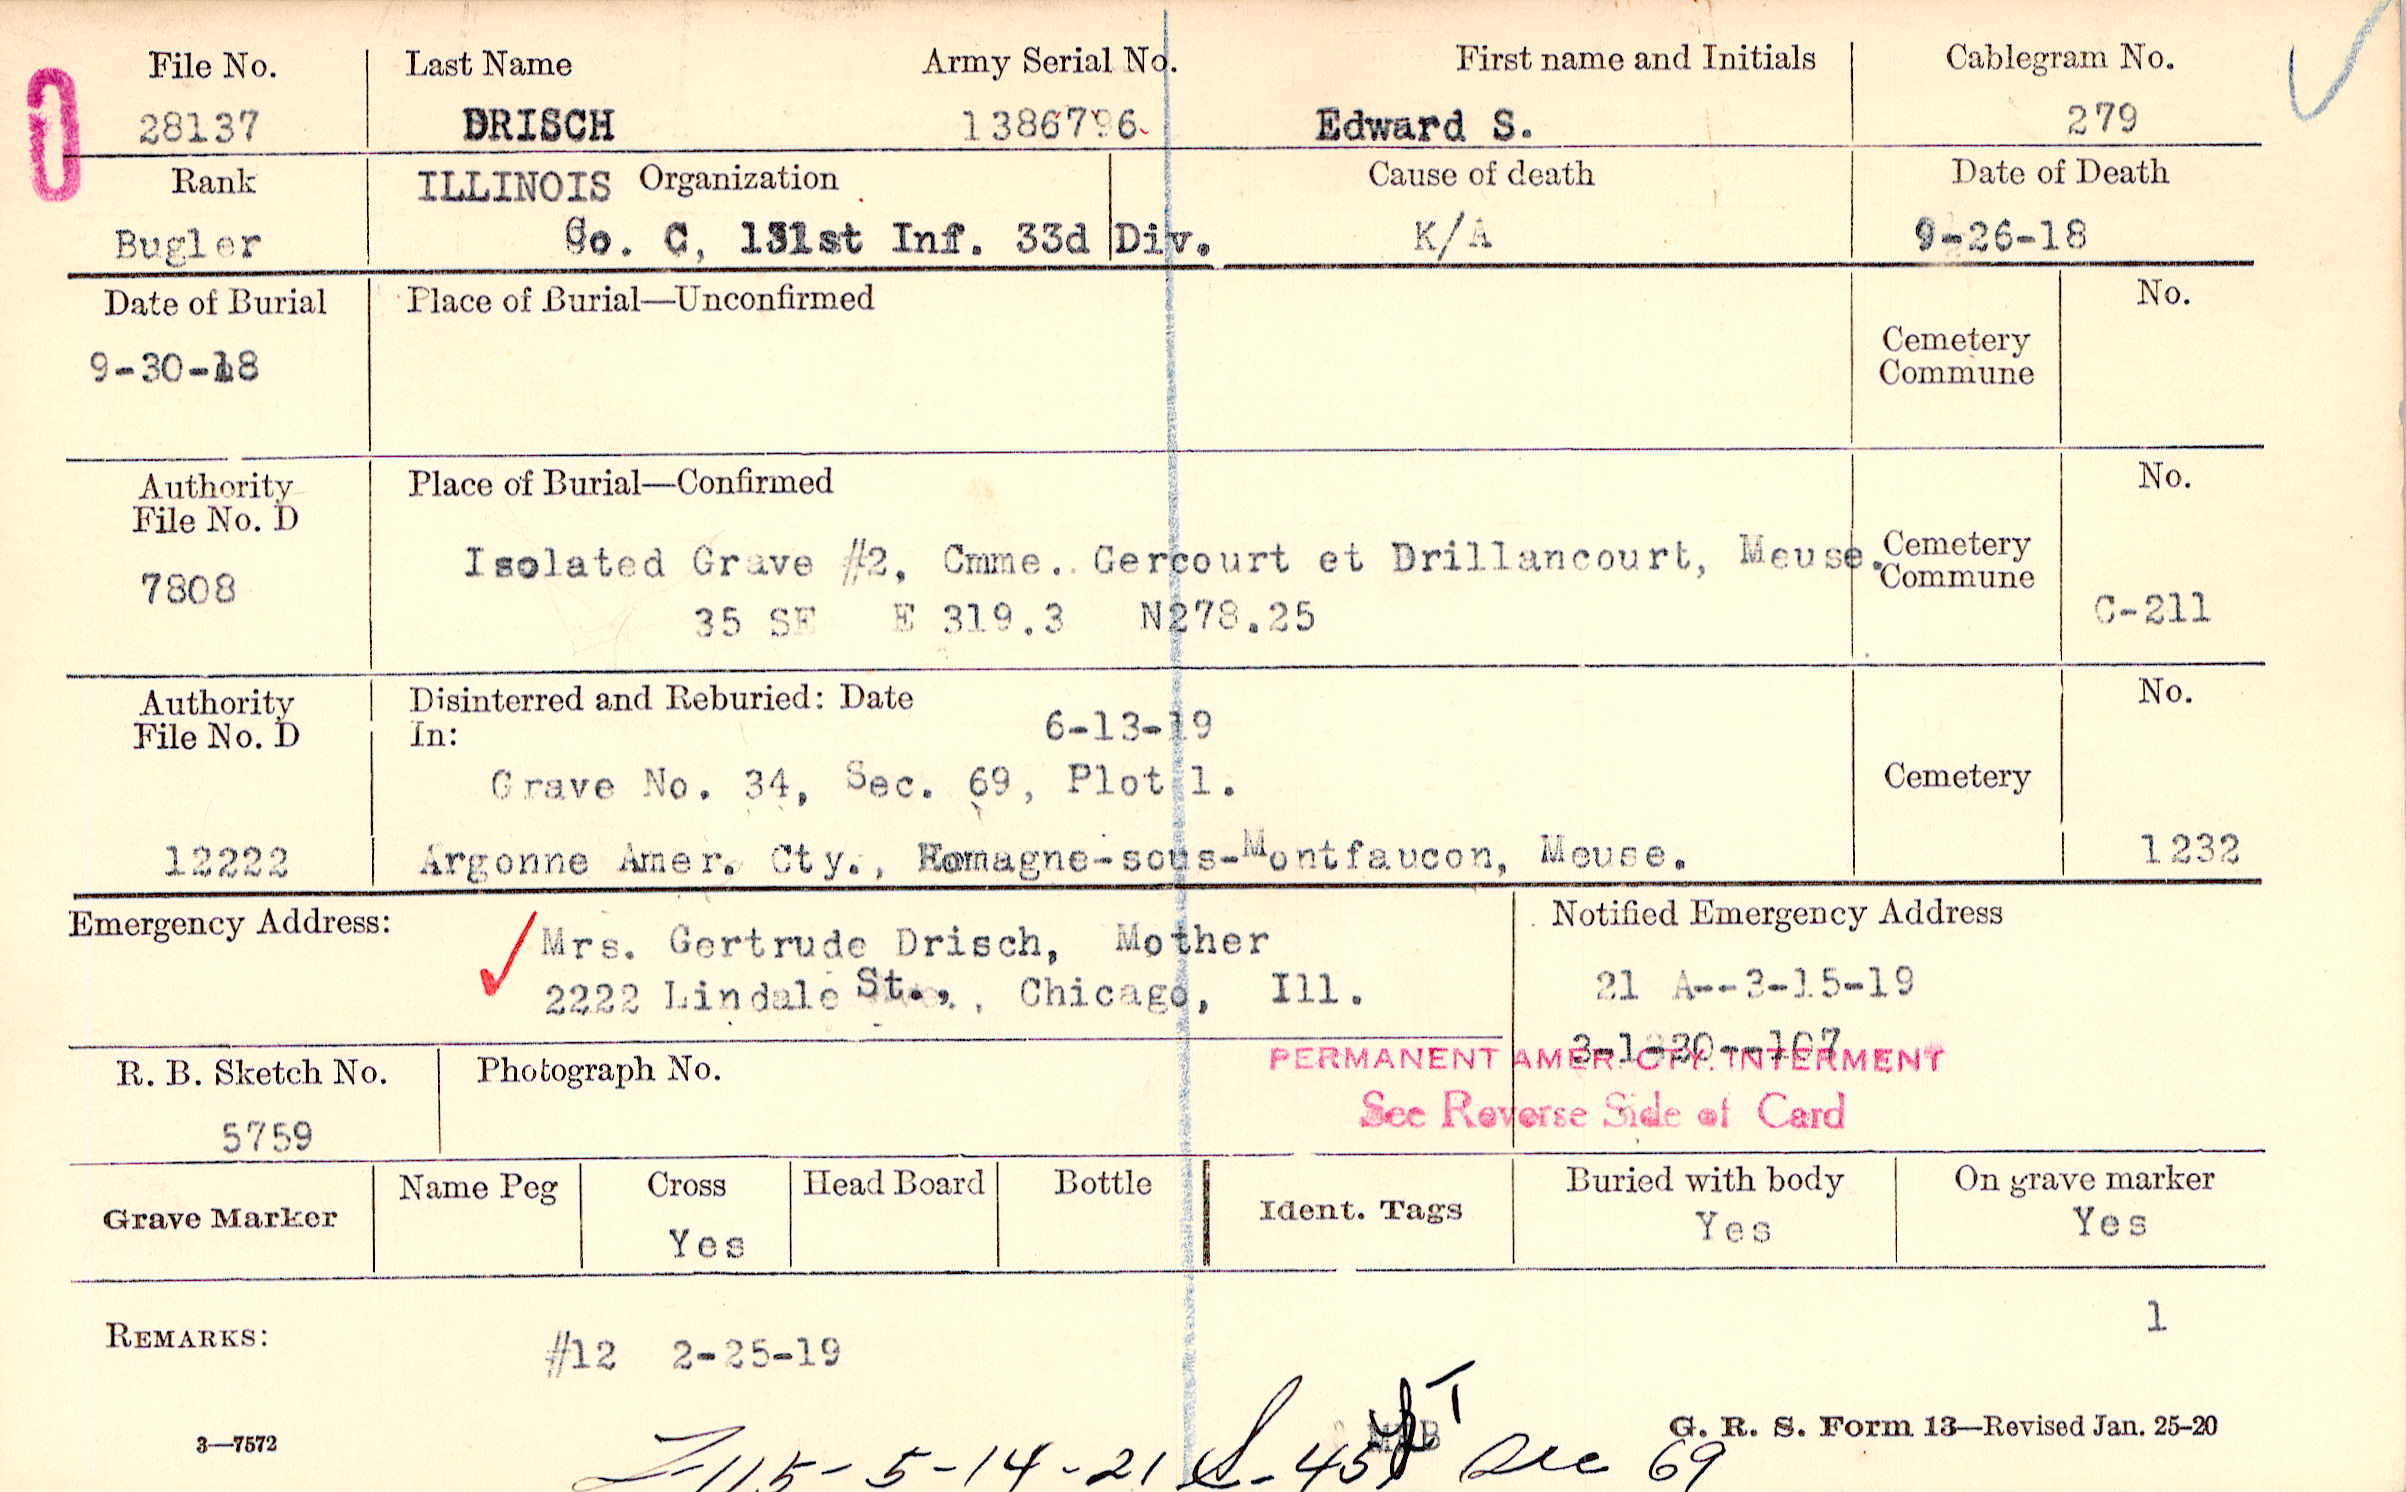 File No. Last Name Army Serial No. First name and Initials Cablegram No.
28137 DRISCH 1386796 Edward S. 279
Rank ILLINOIS Organization Cause of death Date of Death
Bugler Co. C, 131st Inf. 33d Div. K/A 9-26-18
Date of Burial Place of Burial—Unconfirmed No.
9-30-18 Cemetery
Commune
Authority Place of Burial—Confirmed No.
File No. D
7808 Isolated Grave #2, Cmme. Gercourt et Drillancourt, Meuse. Cemetery
Commune
35 SE E 319.3 N278.25 C-211
Authority Disinterred and Reburied: Date No.
File No. D In: 6-13-19
Grave No. 34, Sec. 69, Plot 1. Cemetery
12222 Argonne Amer. Cty., Romagne-sous-Montfaucon, Meuse. 1232
Emergency Address: Notified Emergency Address
Mrs. Gertrude Drisch, Mother
2222 Lindale St., Chicago, Ill. 21 A--3-15-19
PERMANENT AMER. CTY. INTERMENT
R. B. Sketch No. Photograph No.
See Reverse Side of Card
5759
Grave Marker Name Peg Cross Head Board Bottle Ident. Tags Buried with body On grave marker
Yes Yes Yes
1
REMARKS: #12 2-25-19
3—7572 G. R. S. Form 13—Revised Jan. 25-20
115-5-14-21 Sec 69